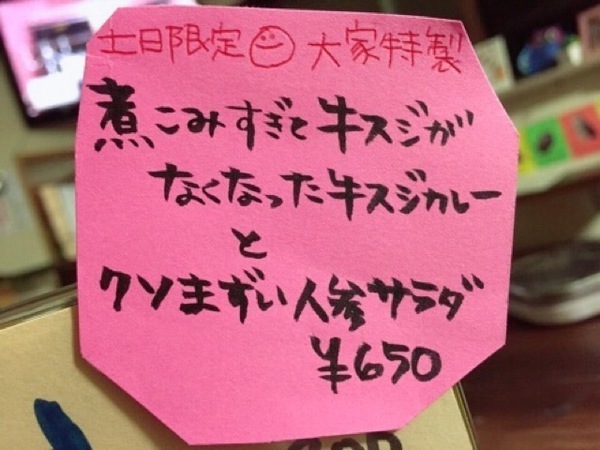 土日限定 大家特製
煮こみすぎて牛スジが
なくなった牛スジカレー
と
クソまずい人参サラダ
¥650